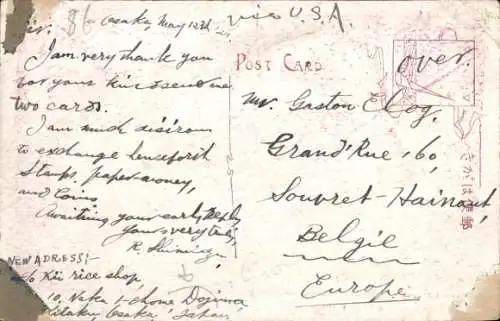 Sir. 86 Osaka, May 12th
via U.S.A.
I am very thank you
for your kind send me
two cards.
I am much desirous
to exchange henceforth
Stamps, paper-money,
and Coins
Awaiting your early reply
Yours very truly,
K. Shimizu
NEW ADRESS:-
c/o Kii rice shop,
10, Naka 1-chome Dojima
Kitaku, Osaka Japan
POST CARD
over.
Mr. Gaston
Grand'Rue 160,
Souvret-Hainaut
Belgie
Europe
便郵 きがは